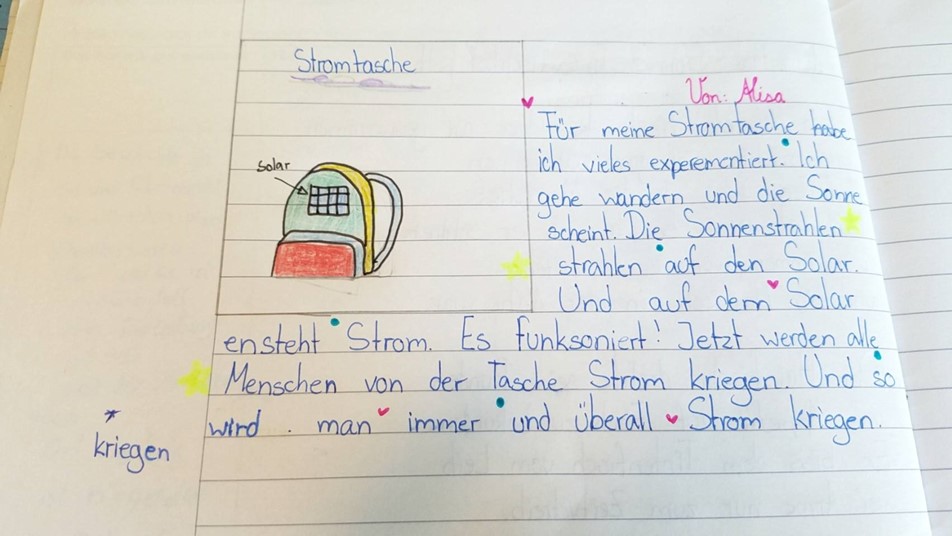 Stromtasche
Solar
Von: Alisa
Für meine Stromtasche habe
ich vieles experementiert. Ich
gehe wandern und die Sonne
scheint. Die Sonnenstrahlen
strahlen auf den Solar.
Und auf dem Solar
ensteht Strom. Es funksoniert! Jetzt werden alle
Menschen von der Tasche Strom kriegen. Und so
wird . man immer und überall Strom kriegen.
*
kriegen